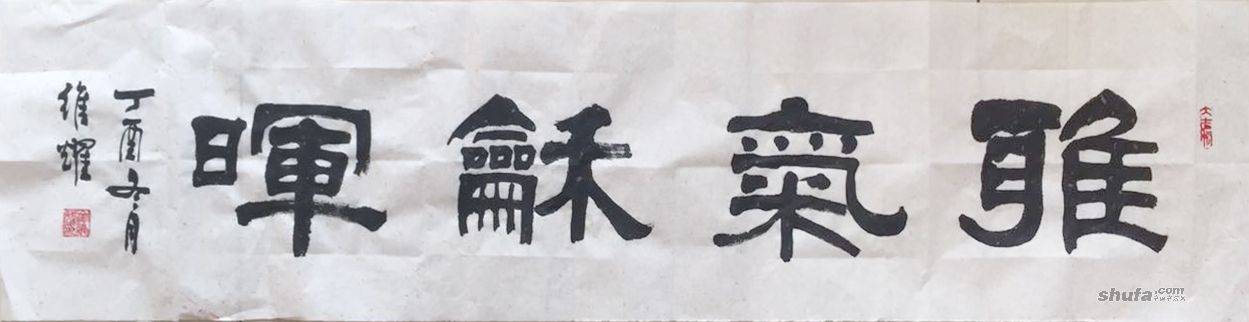 雅氣龢暉
丁酉冬月
維耀
shufa.com